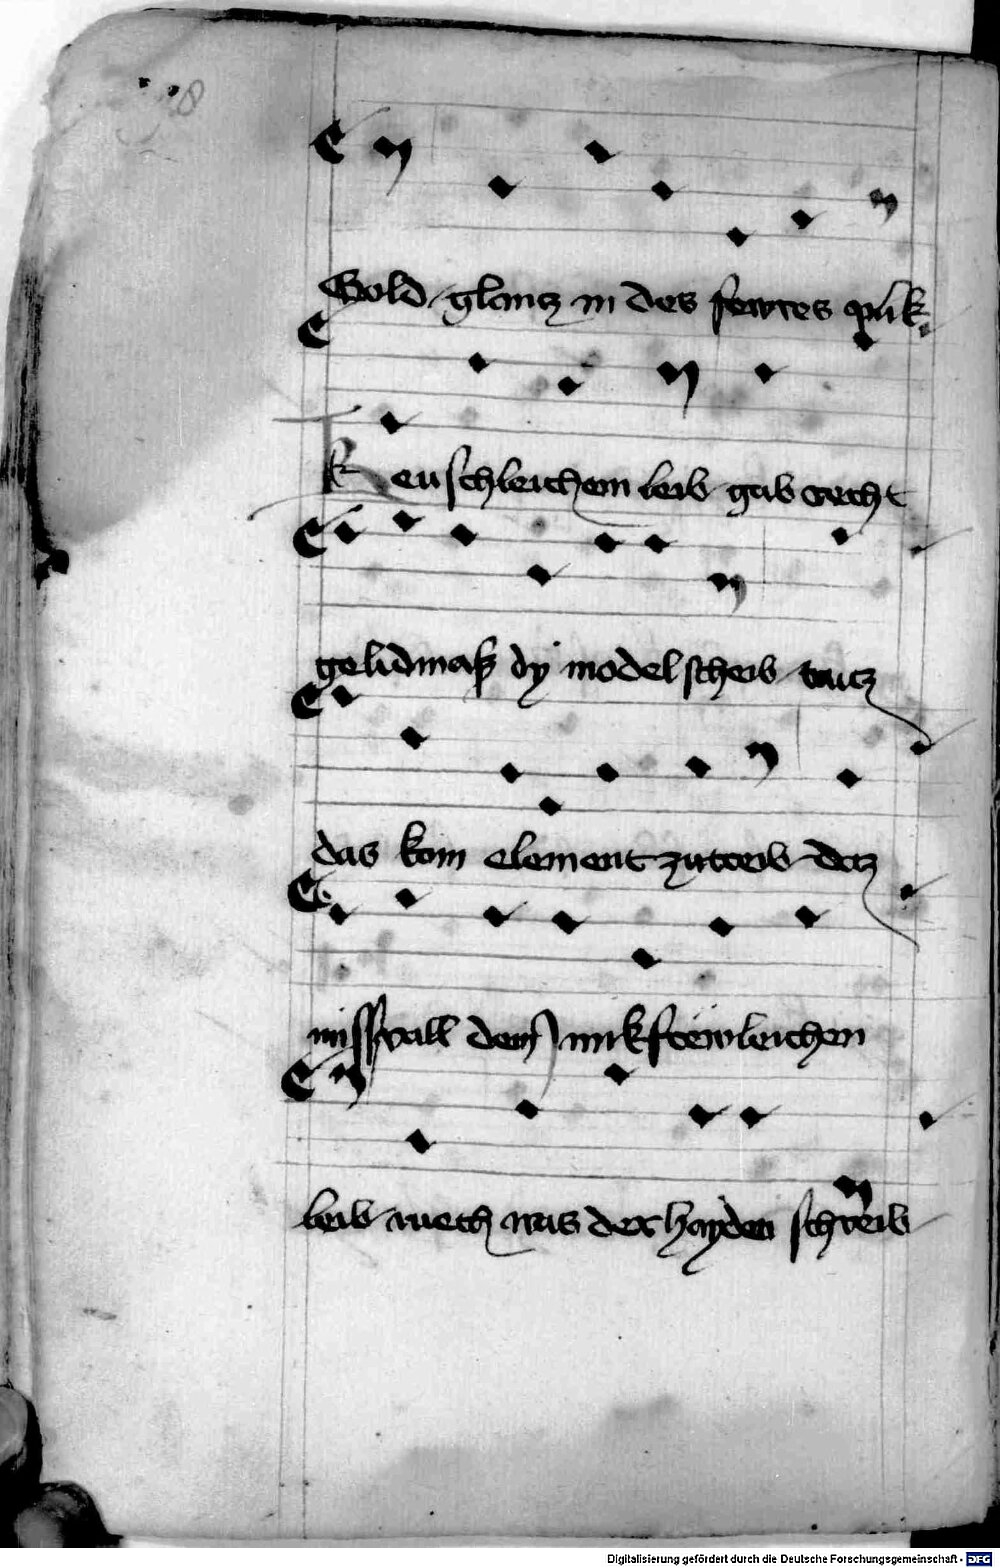 Gold glancz in des fewres quik
Keuschleichem leib gab recht
gelidmass dy model scheib trucz
das kom element zutreib dcz
missvall dem mikftewleichen
leib auech was der hayden schreib
Digitalisierung gefördert durch die Deutsche Forschungsgemeinschaft - DFG